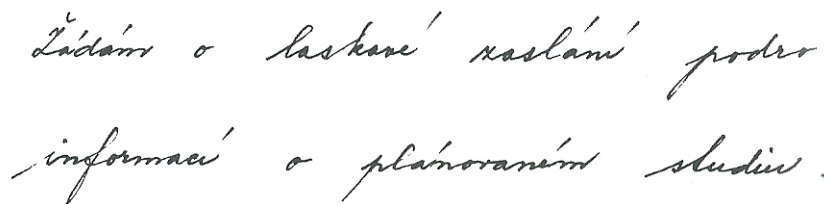 Žádám o laskavé zaslání podro
informací o plánovaném studiu.